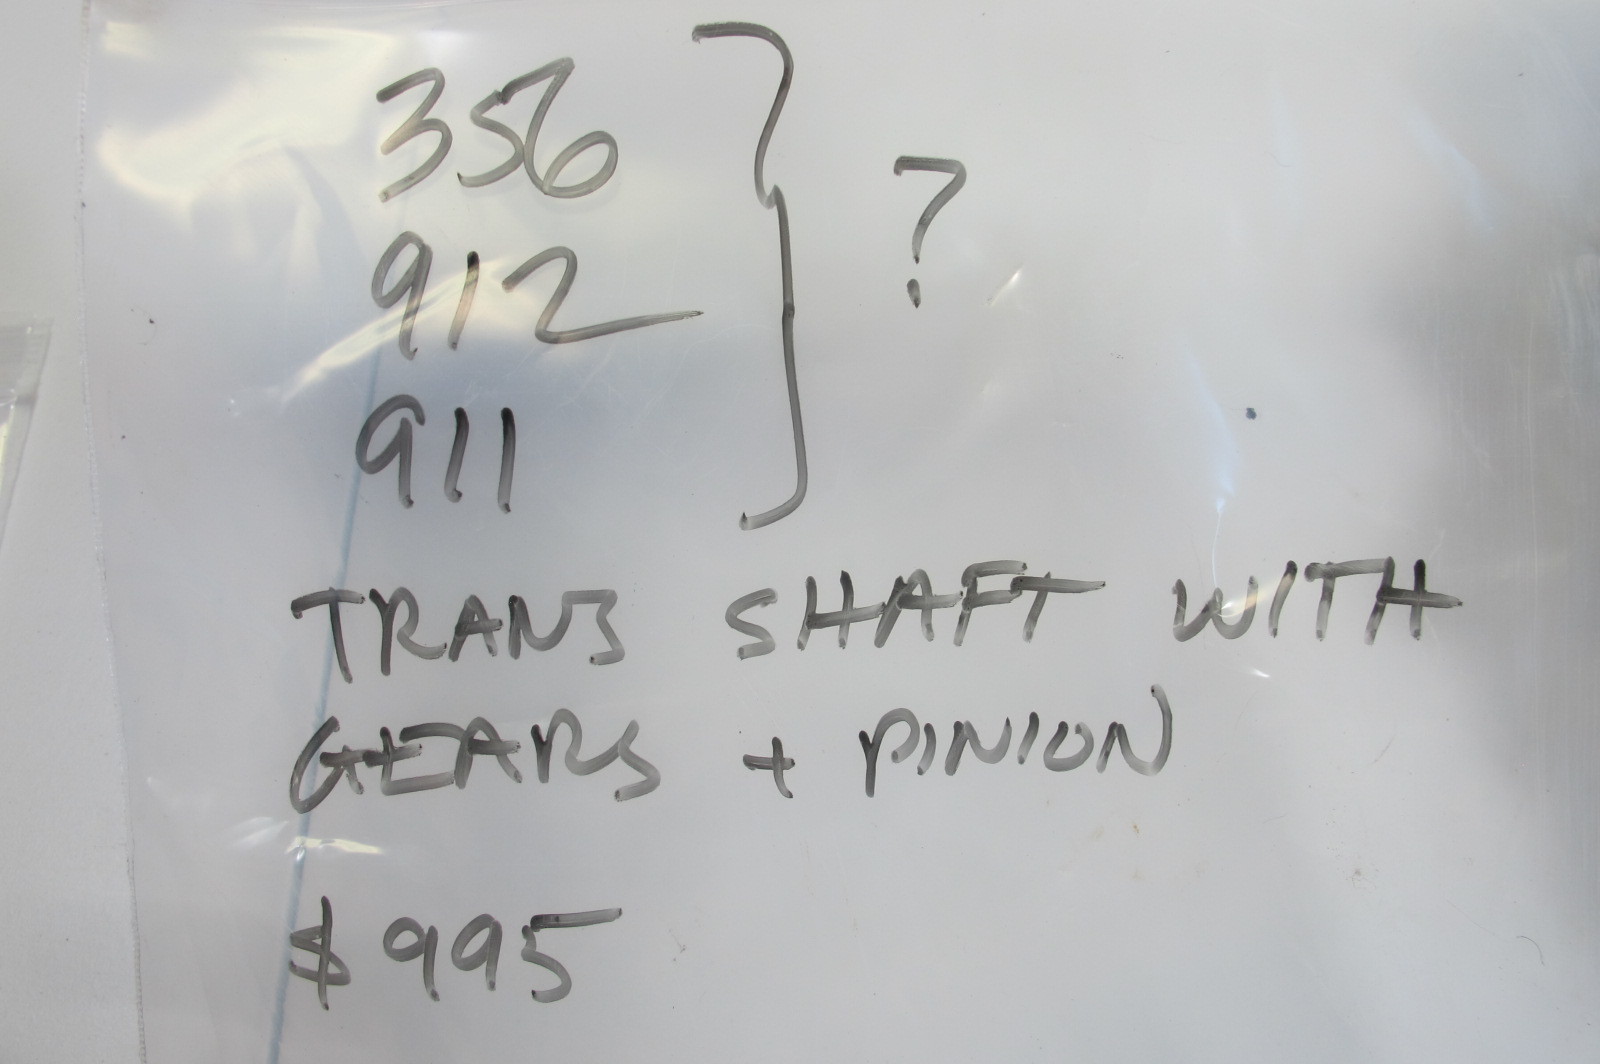 356
912
911
} ?
TRANS SHAFT WITH
GEARS + PINION
$995